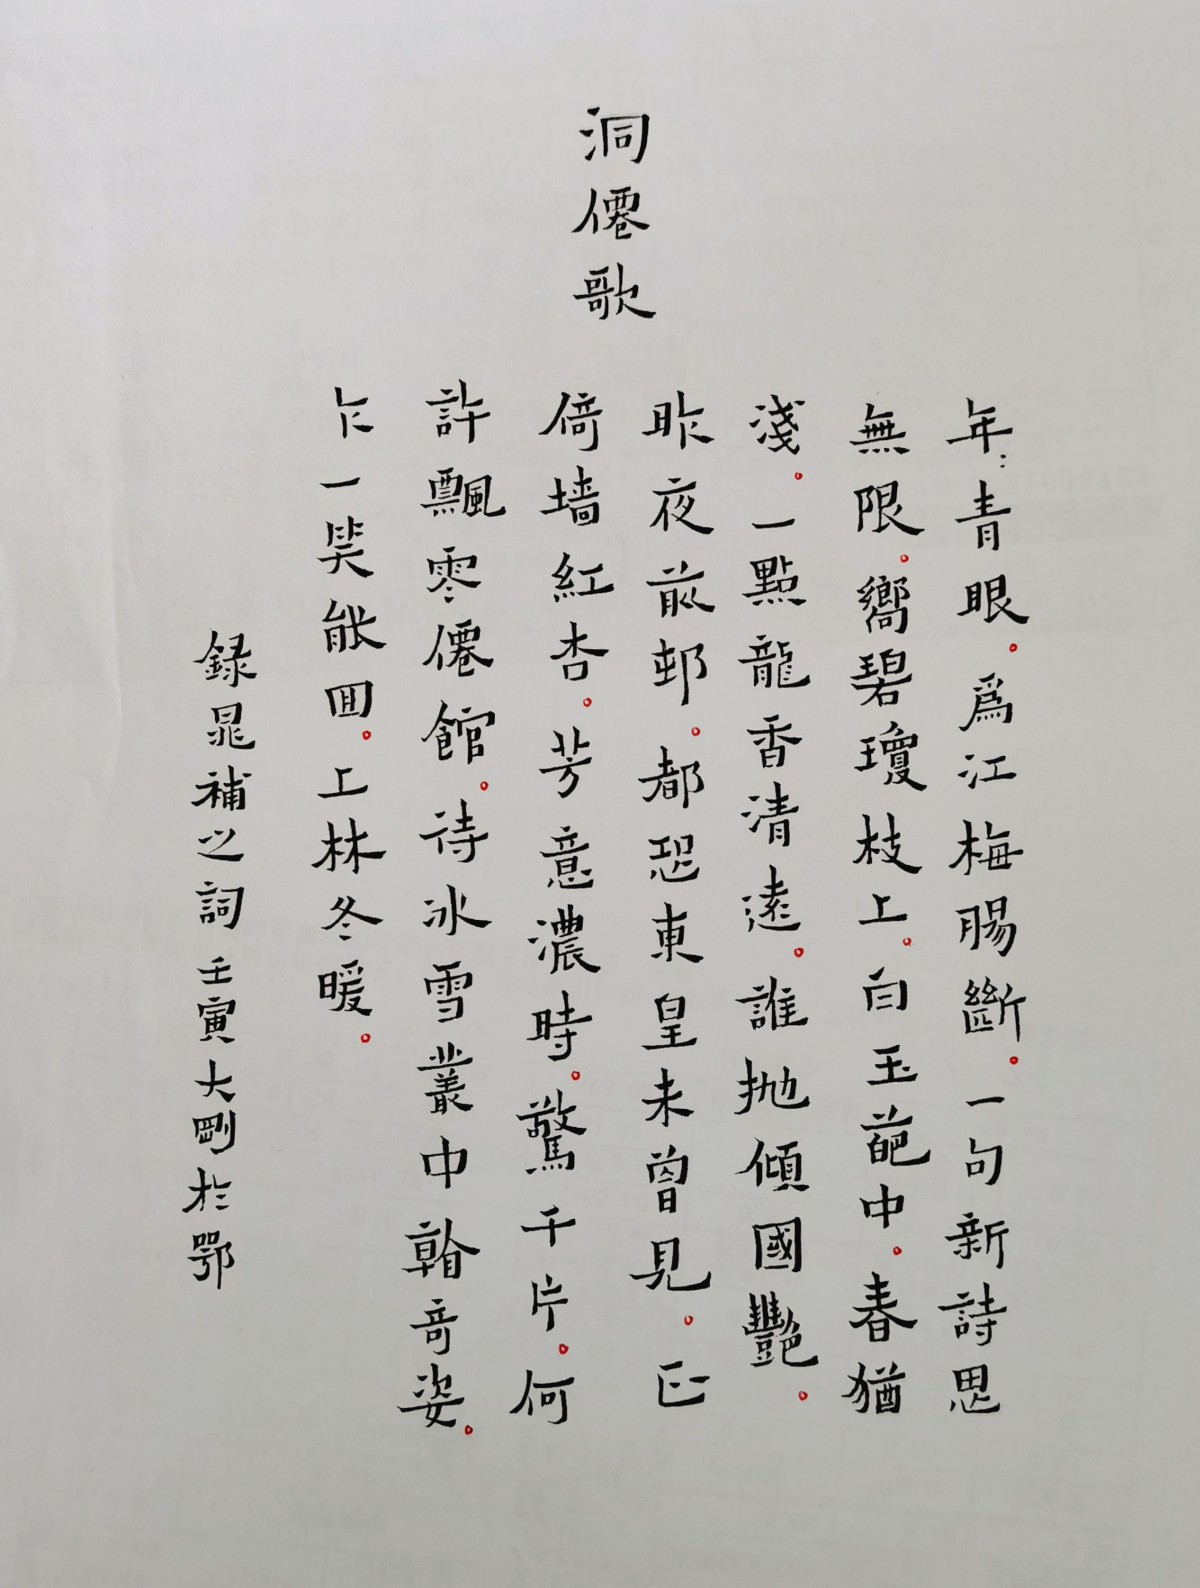 洞僊歌
年〻青眼。爲江梅腸斷。一句新詩思
無限。嚮碧瓊枝上。白玉葩中。春猶
淺。一點龍香清遠。誰抛傾國豔。
昨夜前邨。都恐東皇未曾見。正
倚墙紅杏。芳意濃時。驚千片。何
許飄零僊館。待冰雪叢中斡奇姿。
乍一笑能回。上林冬暖。
録晁補之詞 壬寅大剛於鄂